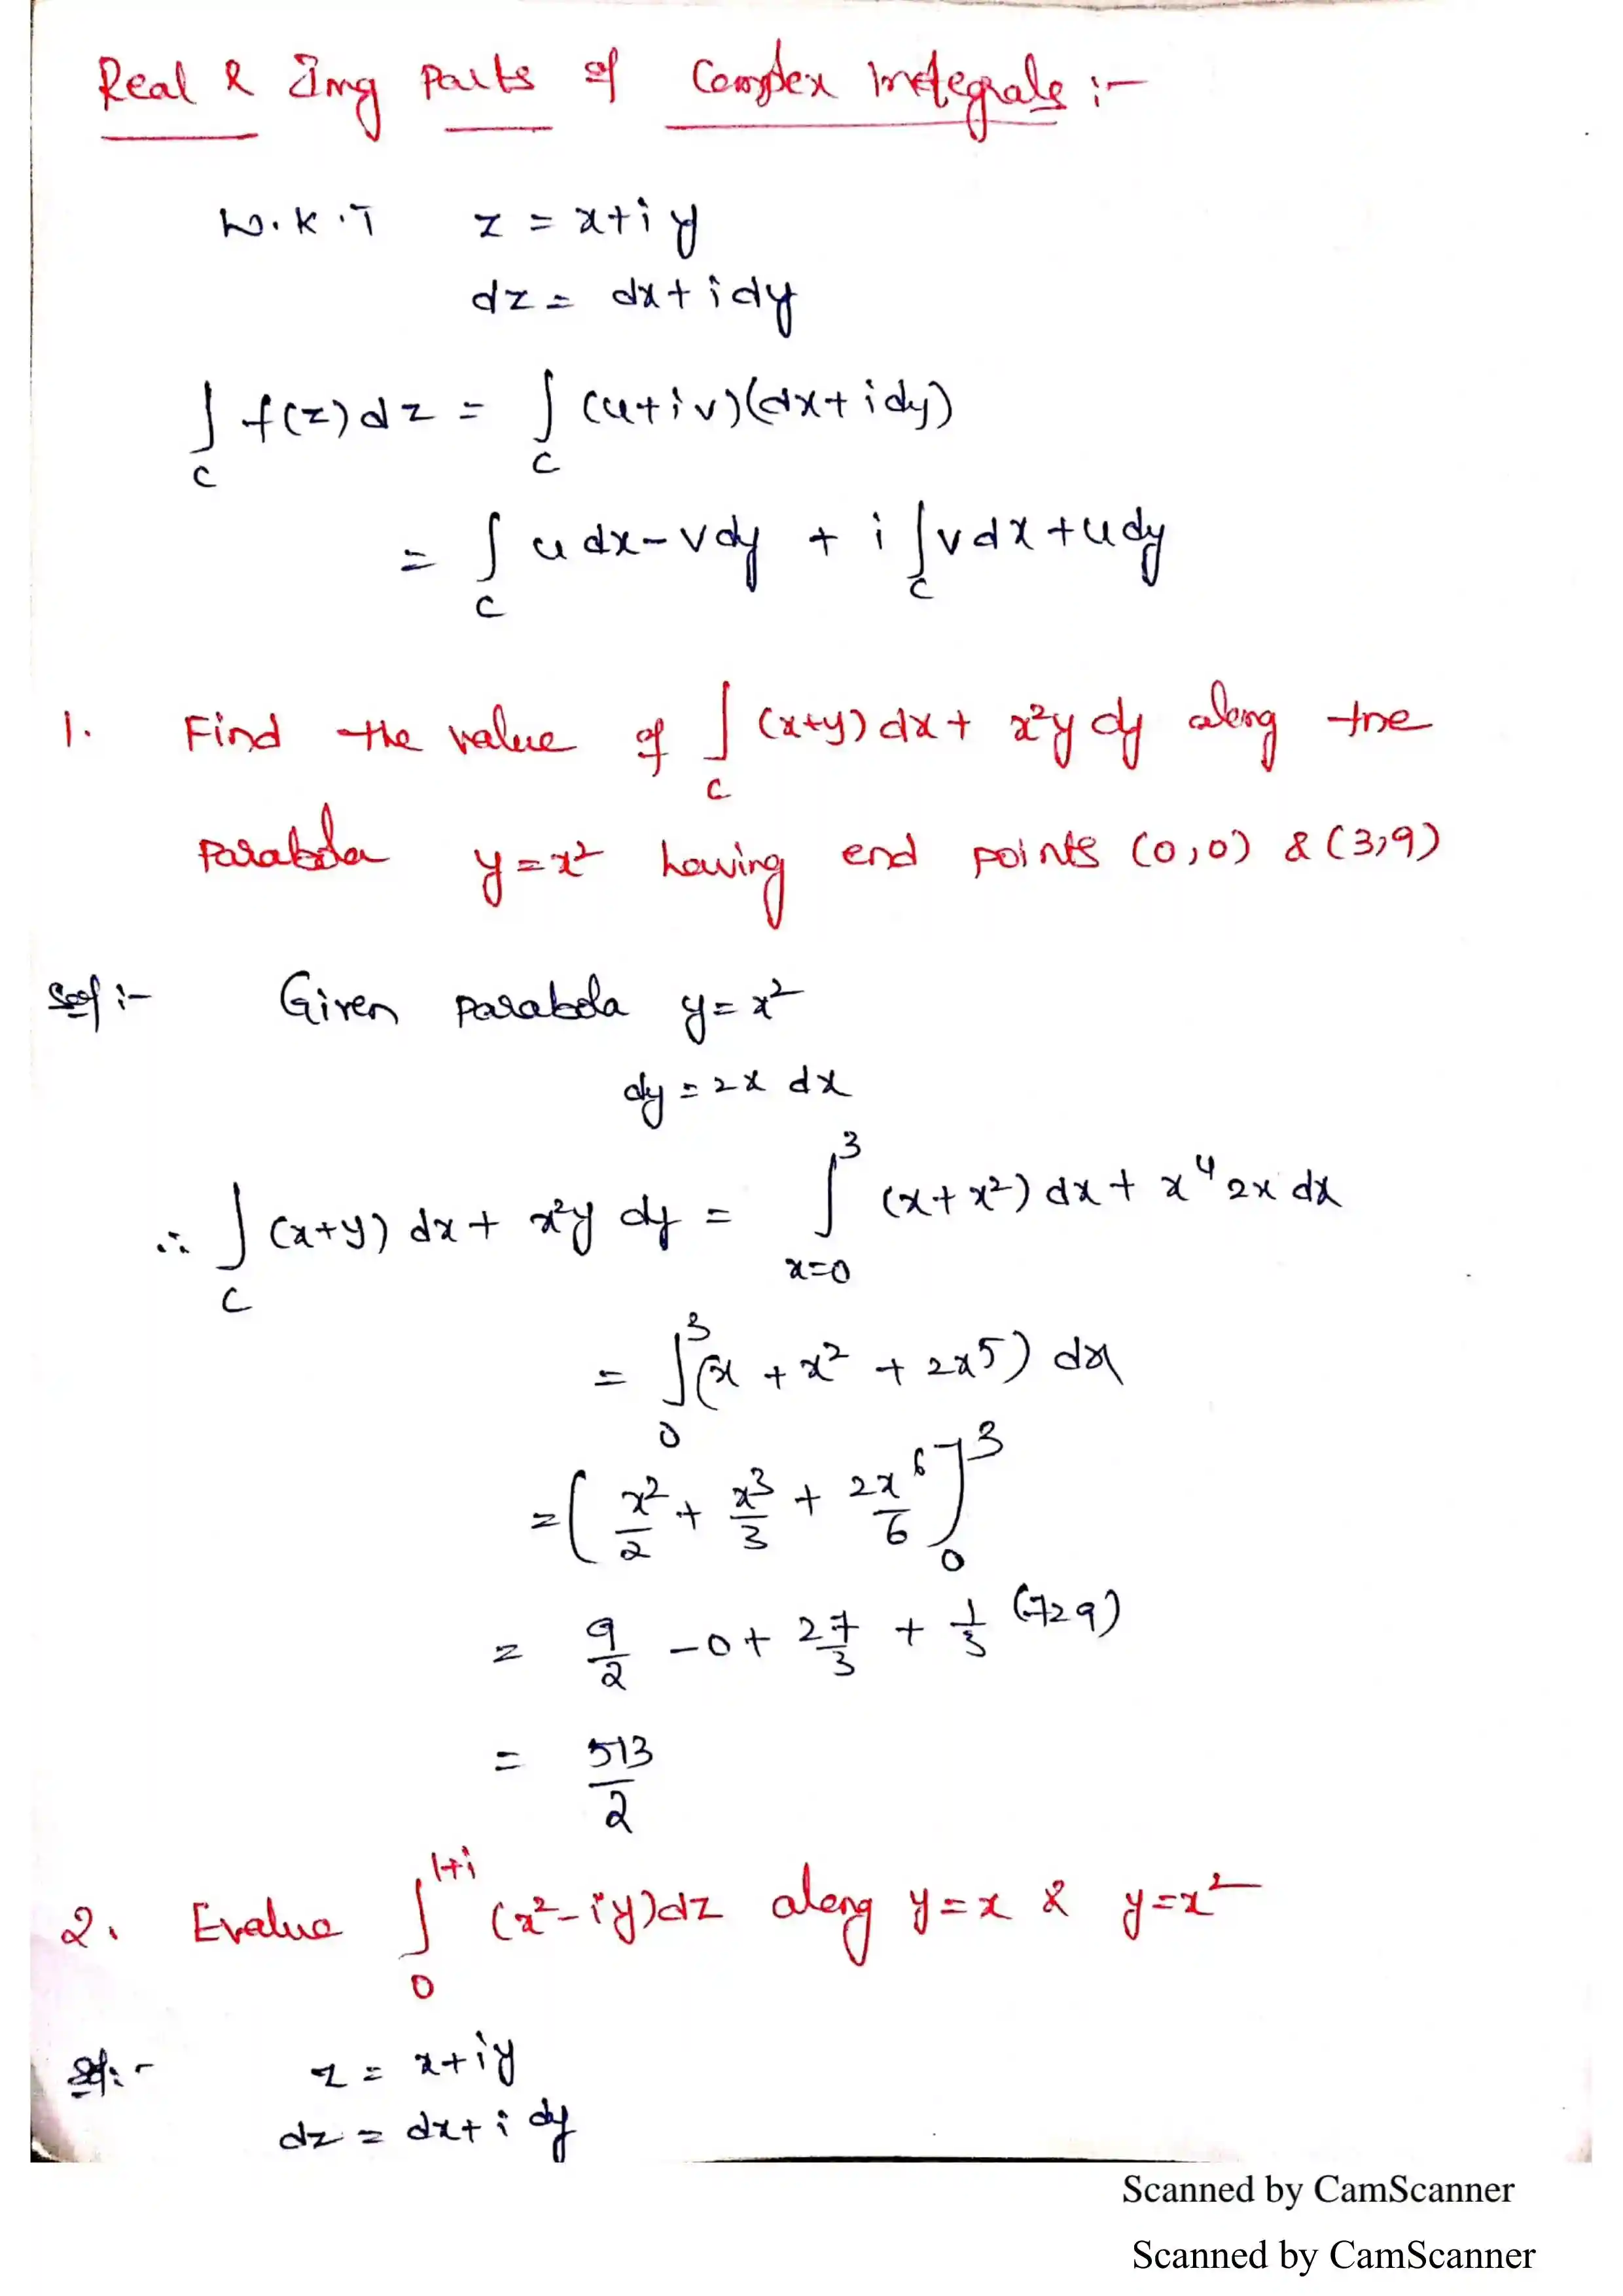 Real & Img Parts of Complex Integrals :-
W.K.T z = x+iy
dz = dx+idy
∫_C f(z)dz = ∫_C (u+iv)(dx+idy)
= ∫_C u dx-vdy + i ∫_C vdx+udy
1. Find the value of ∫_C (x+y)dx + x²y dy along the
Parabola y=x² having end points (0,0) & (3,9)
Sol :- Given parabola y=x²
dy = 2x dx
∴ ∫_C (x+y) dx + x²y dy = ∫_{x=0}^3 (x+x²) dx + x⁴ 2x dx
= ∫_0^3 (x + x² + 2x⁵) dx
= (x²/2 + x³/3 + 2x⁶/6]_0^3
= 9/2 -0+ 27/3 + 1/3 (729)
= 513/2
2. Evalue ∫_0^{1+i} (x²-iy)dz along y=x & y=x²
Sol:- z = x+iy
dz = dx+i dy
Scanned by CamScanner
Scanned by CamScanner